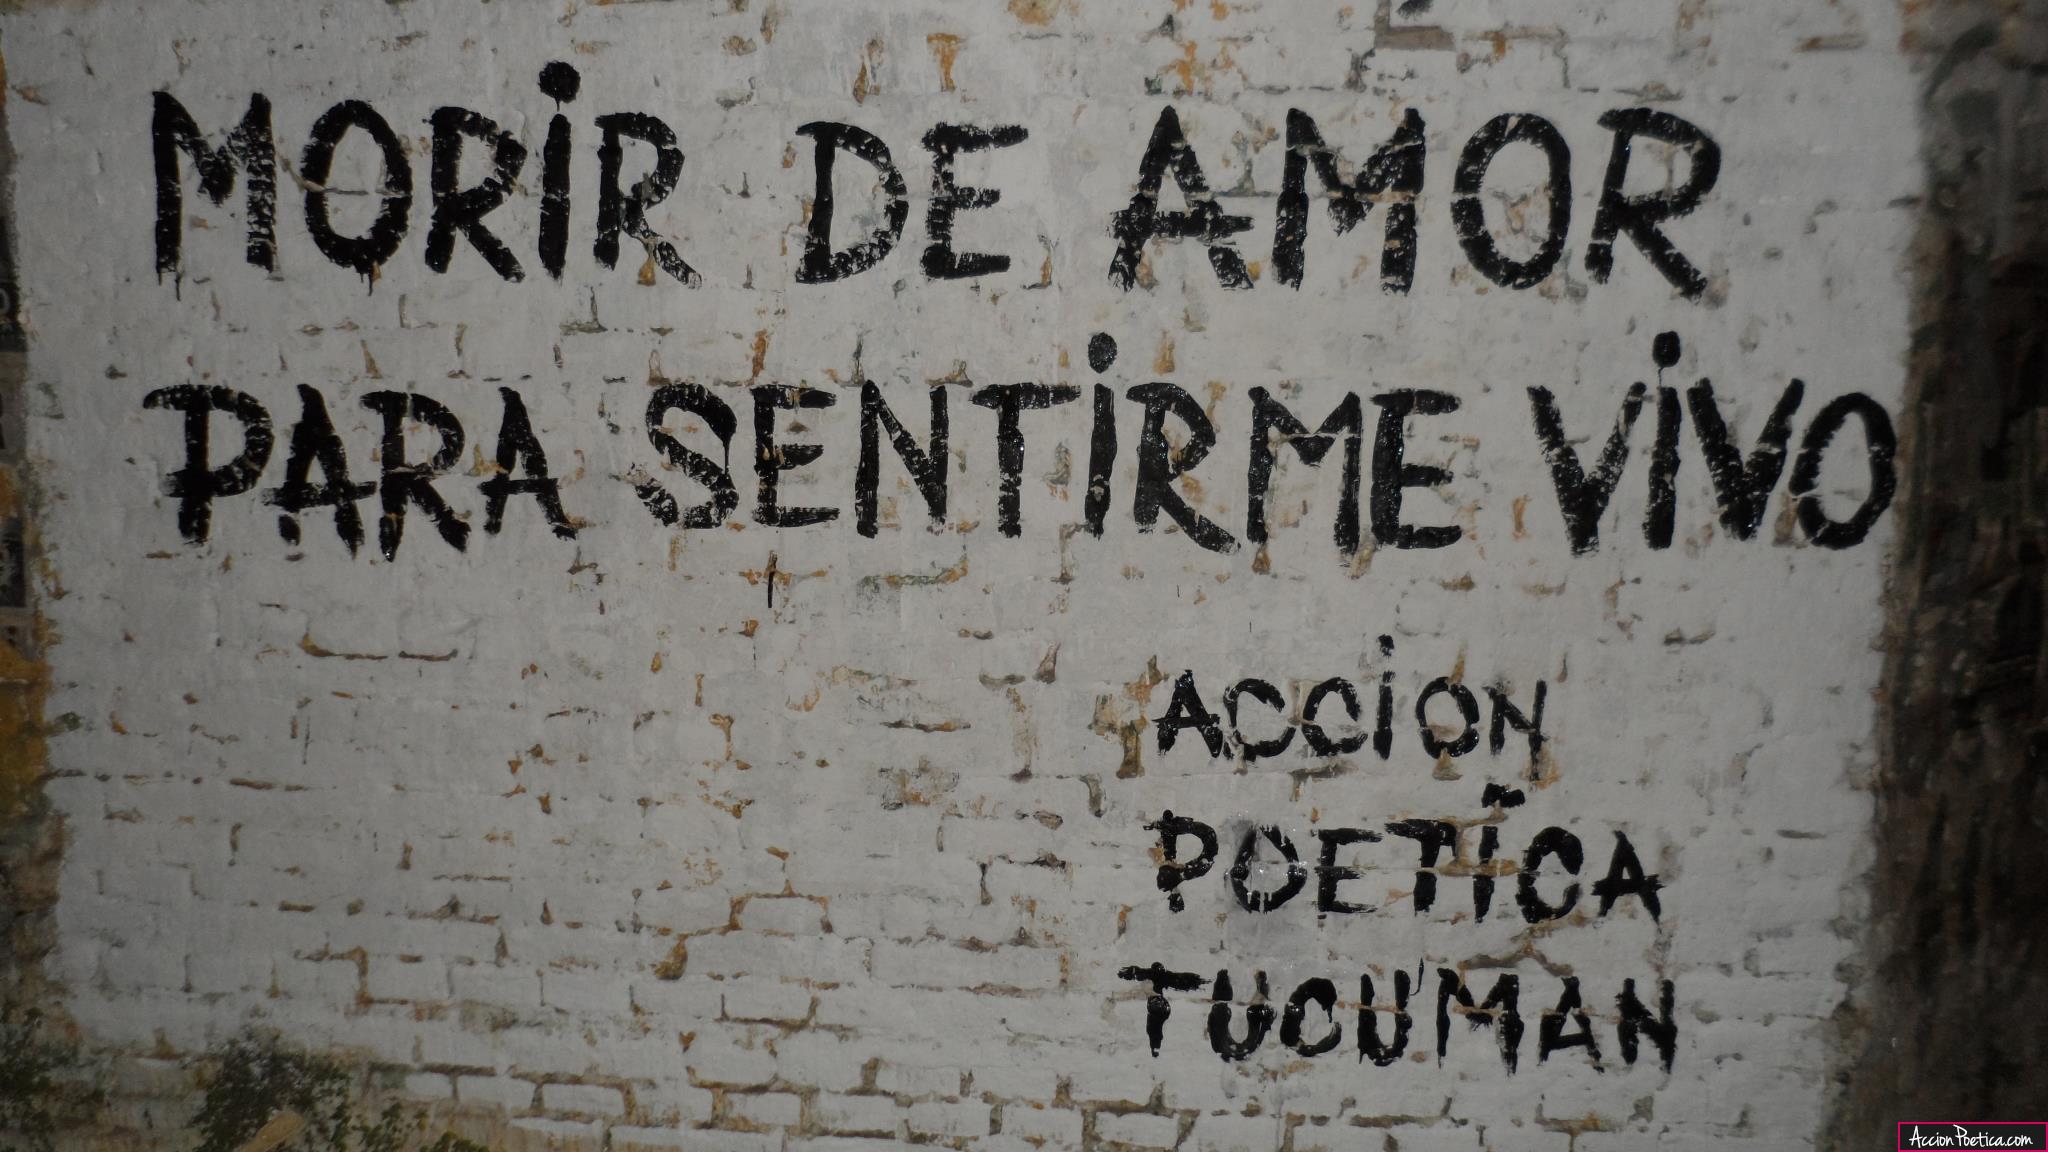 MORiR DE AMOR
PARA SENTiRME ViVO
ACCiON
POETiCA
TUCU'MAN
AccionPoetica.com